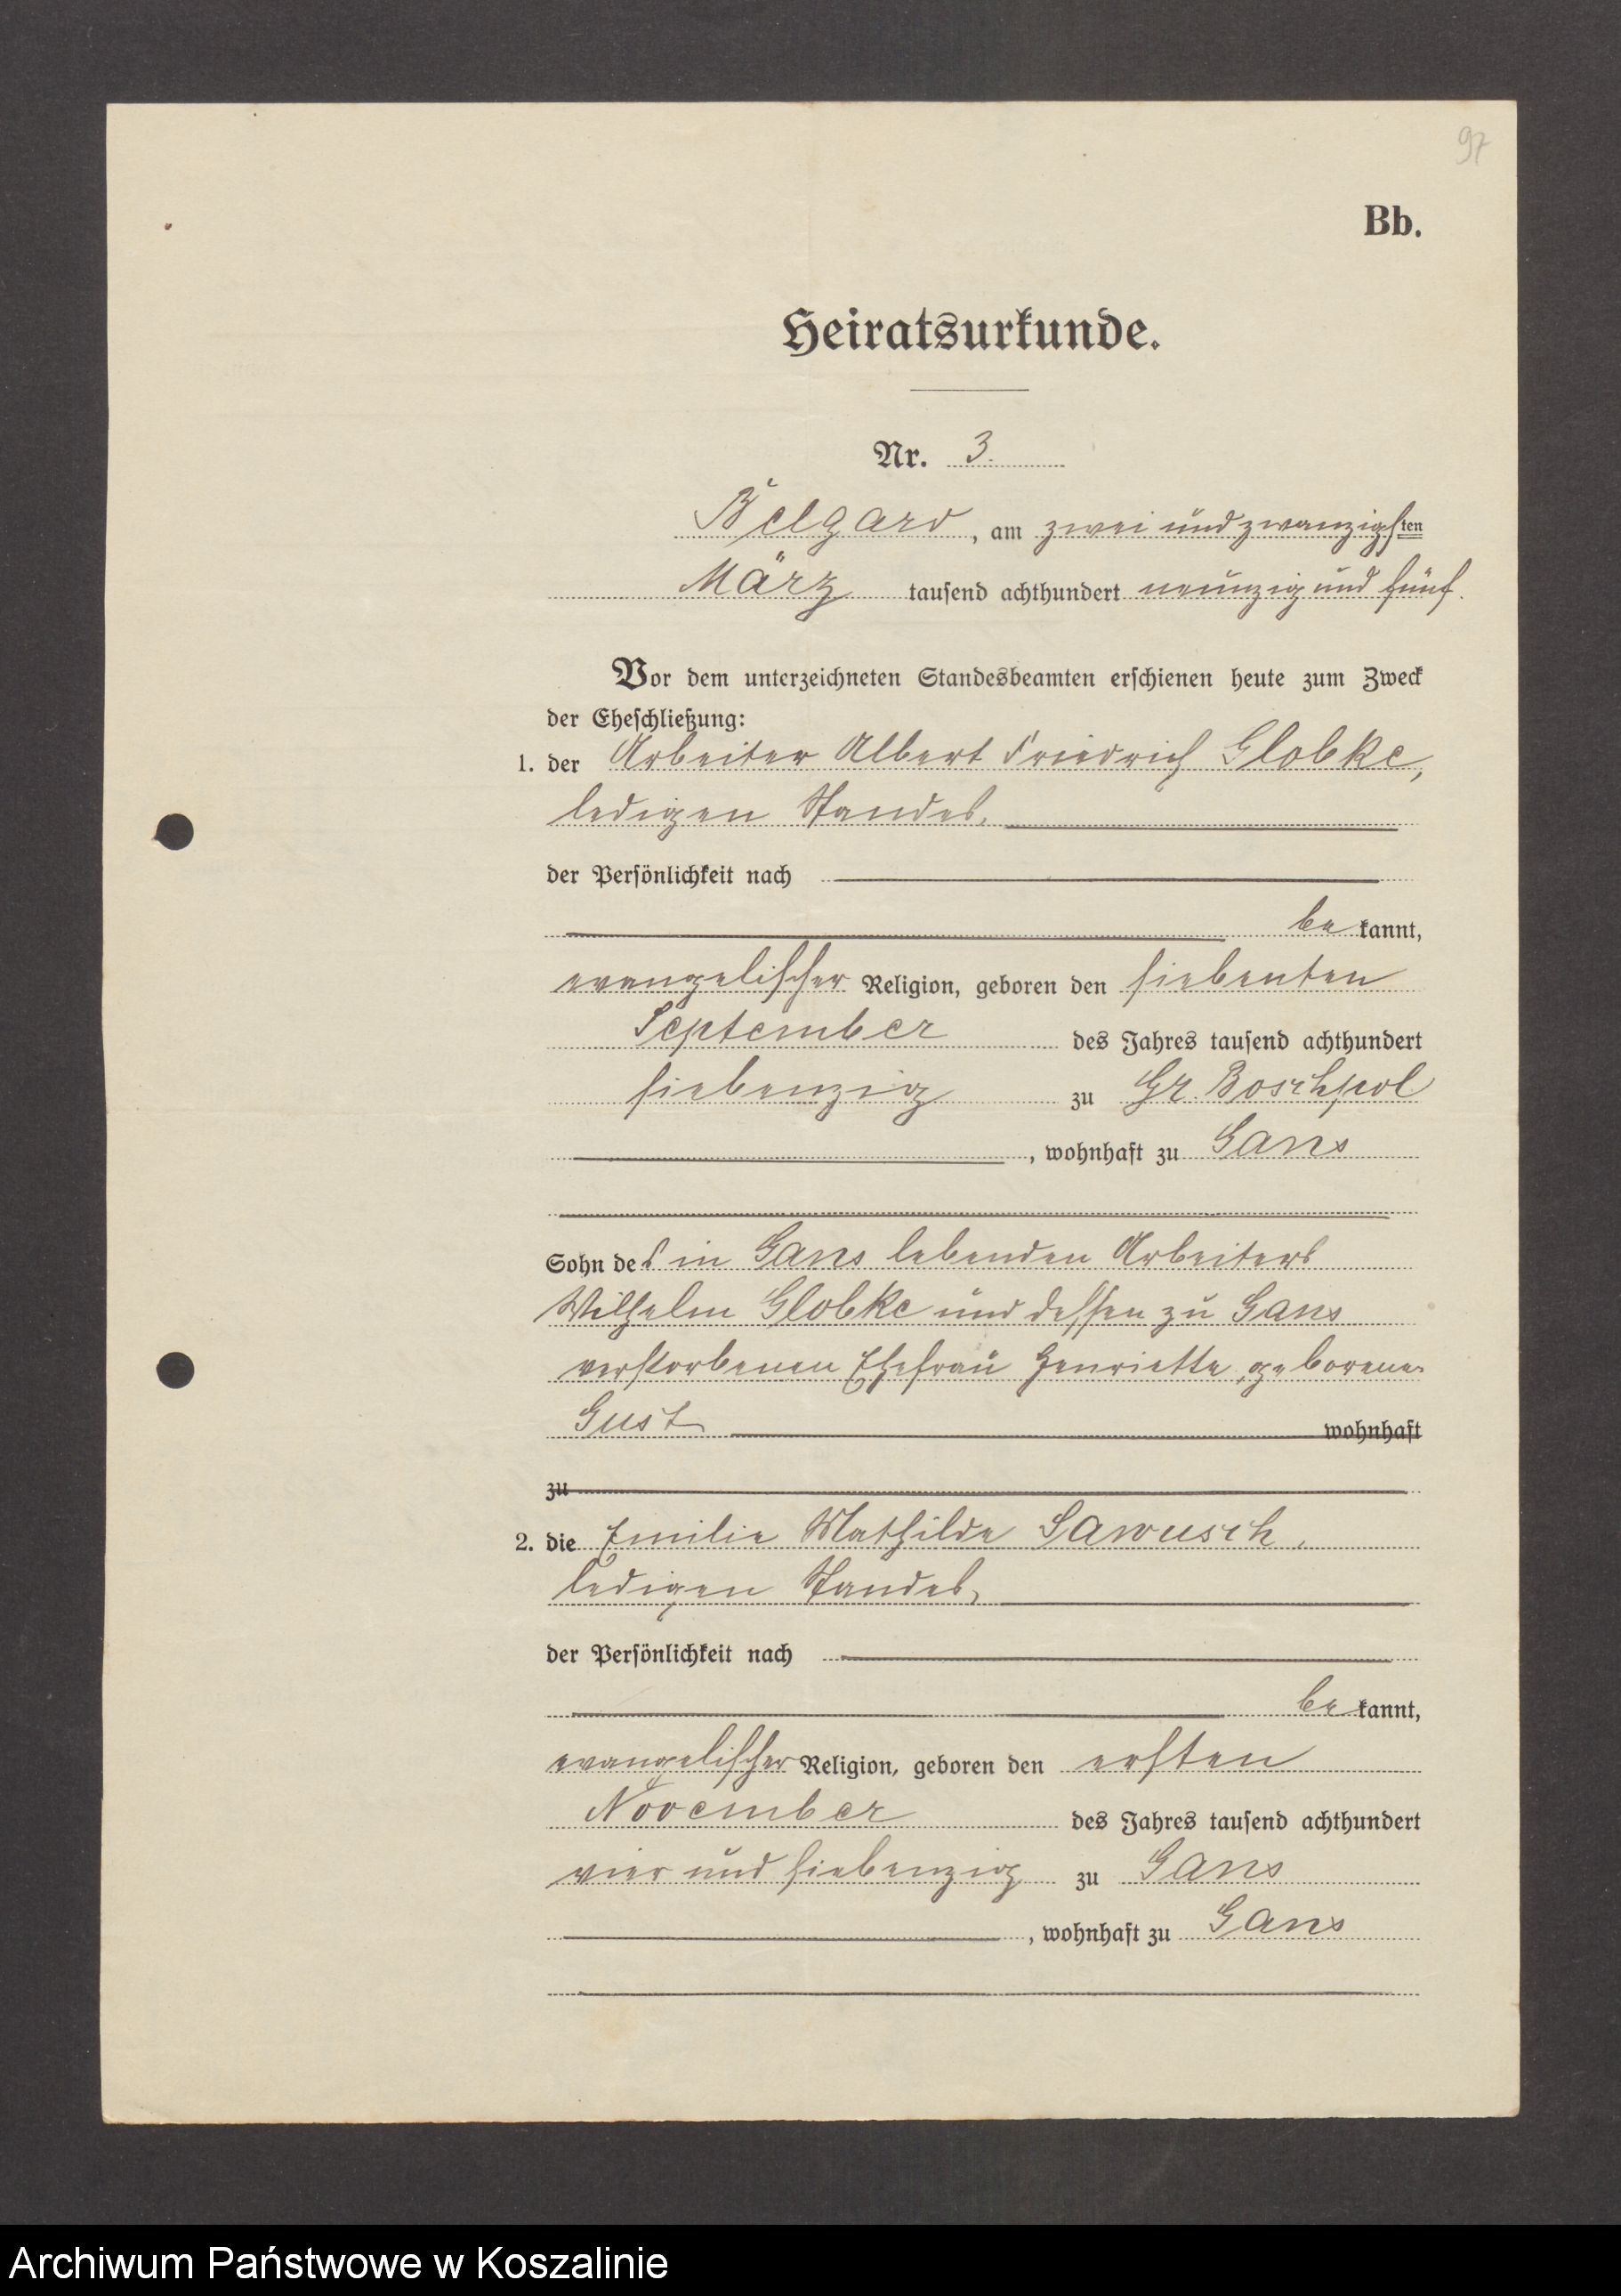 97
Bb.
Heiratsurkunde.
Nr. 3.
Belgard, am zwei und zwanzigsten
März tausend achthundert neunzig und fünf.
Vor dem unterzeichneten Standesbeamten erschienen heute zum Zweck
der Eheschließung:
1. der Arbeiter Albert Friedrich Globke,
ledigen Standes,
der Persönlichkeit nach
be kannt,
evangelischer Religion, geboren den siebenten
September des Jahres tausend achthundert
siebenzig zu Gr. Boschpol
, wohnhaft zu Gans
Sohn des in Gans lebenden Arbeiters
Wilhelm Globke und dessen zu Gans
verstorbenen Ehefrau Henriette, geborene
Gust wohnhaft
zu
2. die Emilie Mathilde Sawusch,
ledigen Standes,
der Persönlichkeit nach
be kannt,
evangelischer Religion, geboren den ersten
November des Jahres tausend achthundert
vier und siebenzig zu Gans
, wohnhaft zu Gans
Archiwum Państwowe w Koszalinie